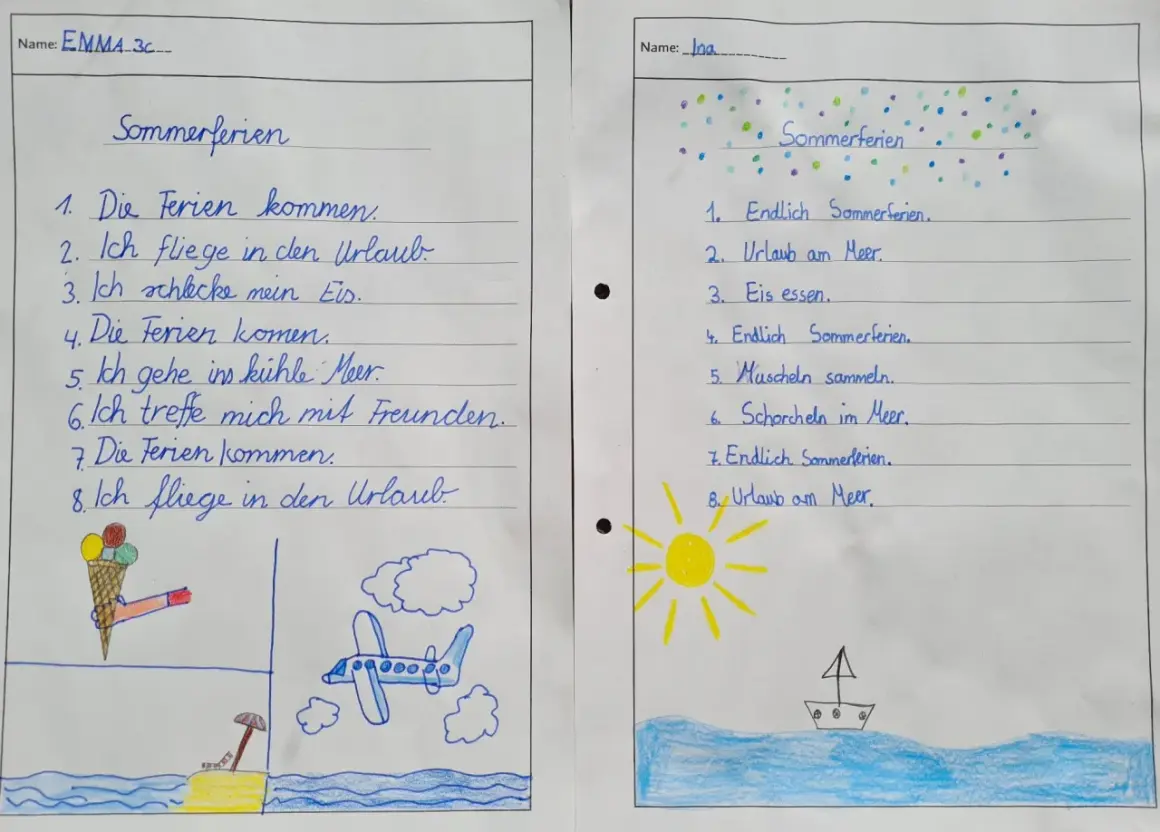 Name: EMMA 3c
Sommerferien
1. Die Ferien kommen.
2. Ich fliege in den Urlaub.
3. Ich schlecke mein Eis.
4. Die Ferien komen.
5. Ich gehe ins kühle Meer.
6. Ich treffe mich mit Freunden.
7. Die Ferien kommen.
8. Ich fliege in den Urlaub.
Name: Ina
Sommerferien
1. Endlich Sommerferien.
2. Urlaub am Meer.
3. Eis essen.
4. Endlich Sommerferien.
5. Muscheln sammeln.
6. Schorcheln im Meer.
7. Endlich Sommerferien.
8. Urlaub am Meer.